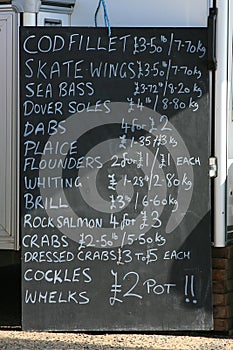 COD FILLET £3-50 lb/7-70 kg
SKATE WINGS £3-50 lb/7-70 kg
SEA BASS £3-72 lb/8-20 kg
DOVER SOLES £4 lb/8-80 kg
DABS 4 for £2
PLAICE £1-35 lb/£3 kg
FLOUNDERS 2 for £1/£1 EACH
WHITING £1-28 lb/2-80 kg
BRILL £3 lb/6-60 kg
ROCK SALMON 4 for £3
CRABS £2-50 lb/5-50 kg
DRESSED CRABS £3 to £5 EACH
COCKLES
WHELKS £2 POT !!